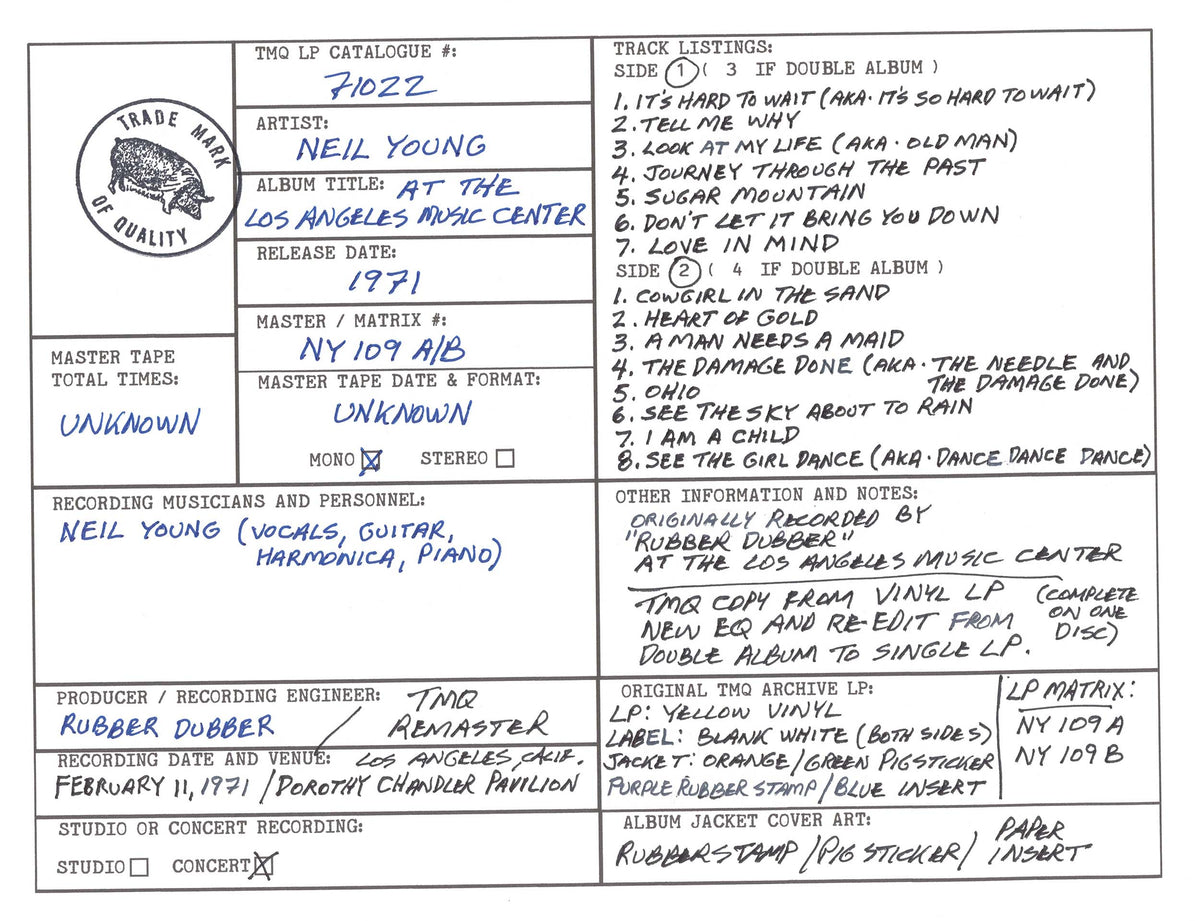 TRADE MARK
OF QUALITY
TMQ LP CATALOGUE #:
71022
ARTIST:
NEIL YOUNG
ALBUM TITLE: AT THE
LOS ANGELES MUSIC CENTER
RELEASE DATE:
1971
MASTER / MATRIX #:
NY 109 A/B
MASTER TAPE
TOTAL TIMES:
UNKNOWN
MASTER TAPE DATE & FORMAT:
UNKNOWN
MONO STEREO
TRACK LISTINGS:
SIDE 1 ( 3 IF DOUBLE ALBUM )
1. IT'S HARD TO WAIT (AKA· IT'S SO HARD TO WAIT)
2. TELL ME WHY
3. LOOK AT MY LIFE (AKA· OLD MAN)
4. JOURNEY THROUGH THE PAST
5. SUGAR MOUNTAIN
6. DON'T LET IT BRING YOU DOWN
7. LOVE IN MIND
SIDE 2 ( 4 IF DOUBLE ALBUM )
1. COWGIRL IN THE SAND
2. HEART OF GOLD
3. A MAN NEEDS A MAID
4. THE DAMAGE DONE (AKA· THE NEEDLE AND
THE DAMAGE DONE)
5. OHIO
6. SEE THE SKY ABOUT TO RAIN
7. I AM A CHILD
8. SEE THE GIRL DANCE (AKA· DANCE DANCE DANCE)
RECORDING MUSICIANS AND PERSONNEL:
NEIL YOUNG (VOCALS, GUITAR,
HARMONICA, PIANO)
OTHER INFORMATION AND NOTES:
ORIGINALLY RECORDED BY
"RUBBER DUBBER"
AT THE LOS ANGELES MUSIC CENTER
TMQ COPY FROM VINYL LP (COMPLETE
NEW EQ AND RE-EDIT FROM ON ONE
DOUBLE ALBUM TO SINGLE LP. DISC)
PRODUCER / RECORDING ENGINEER: TMQ
RUBBER DUBBER / REMASTER
RECORDING DATE AND VENUE: LOS ANGELES, CALIF.
FEBRUARY 11, 1971 / DOROTHY CHANDLER PAVILION
STUDIO OR CONCERT RECORDING:
STUDIO CONCERT
ORIGINAL TMQ ARCHIVE LP:
LP: YELLOW VINYL
LABEL: BLANK WHITE (BOTH SIDES)
JACKET: ORANGE/GREEN PIGSTICKER
PURPLE RUBBER STAMP/BLUE INSERT
LP MATRIX:
NY 109 A
NY 109 B
ALBUM JACKET COVER ART:
RUBBERSTAMP / PIG STICKER / PAPER
INSERT